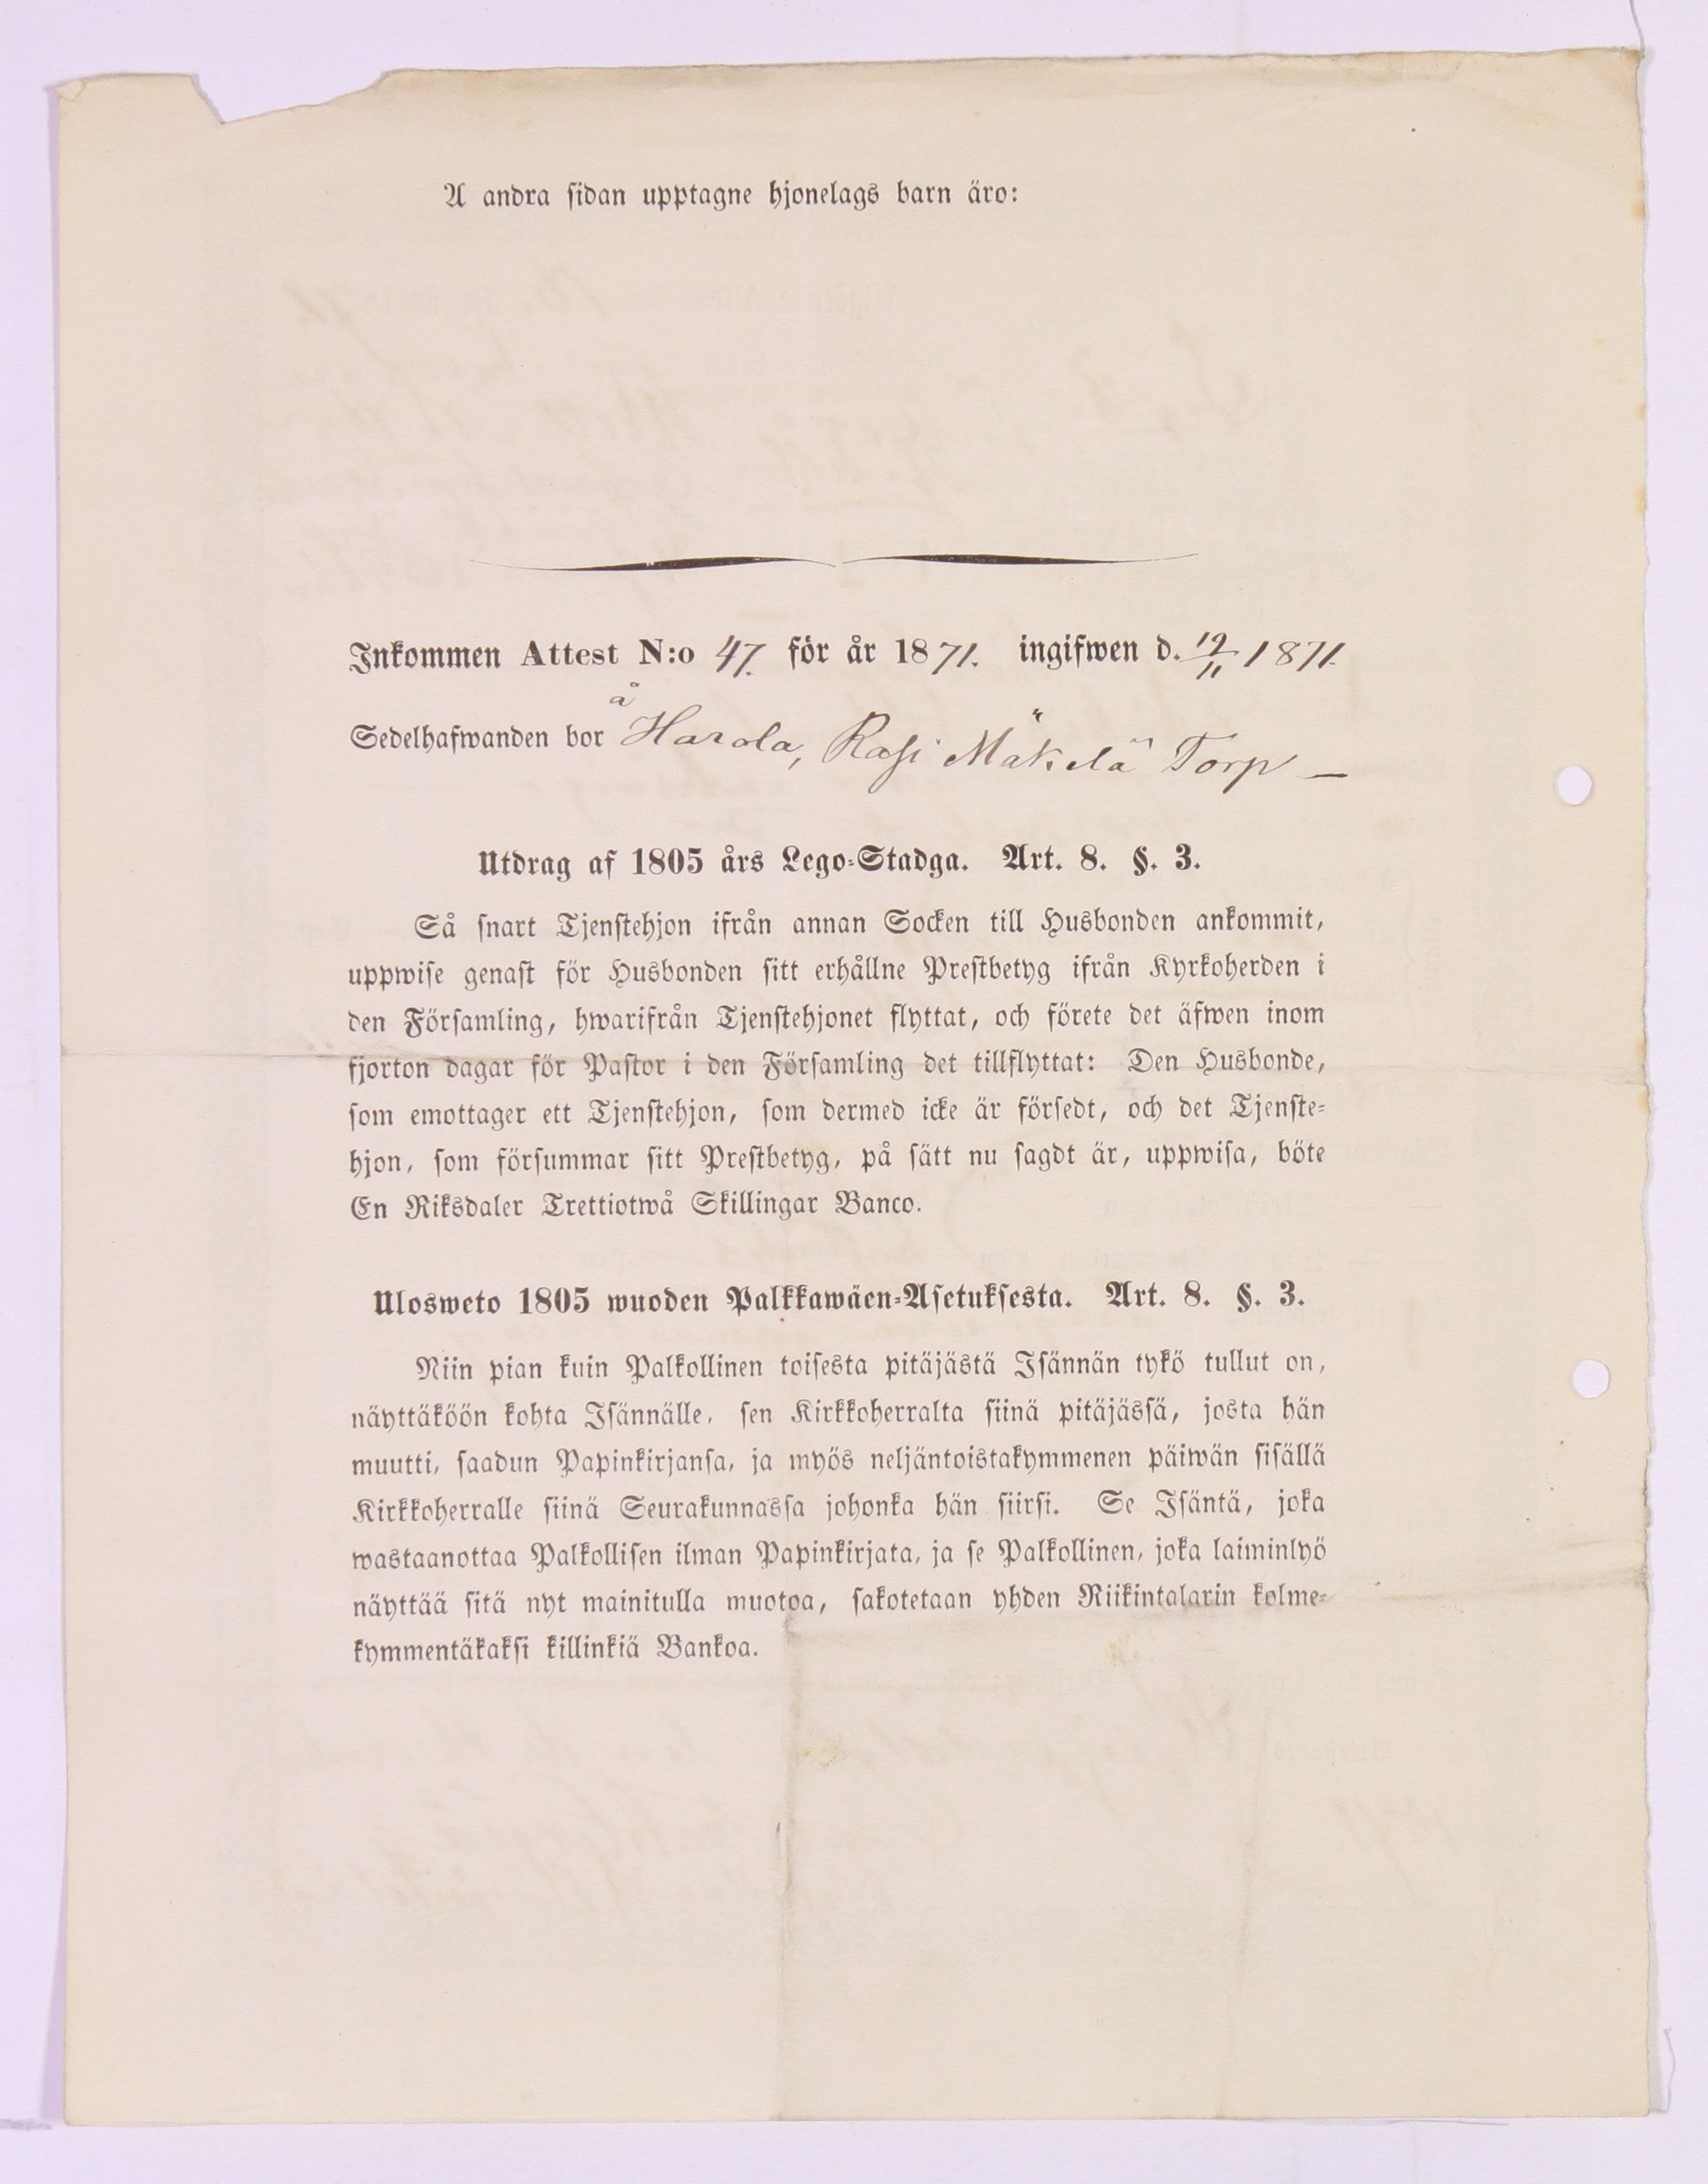 A andra sidan upptagne hjonelags barn äro:
Inkommen Attest N:o 47. för år 1871. ingifwen d. 19/11 1871.
å
Sedelhafwanden bor Harola, Rasi Mäkelä Torp —
Utdrag af 1805 års Lego-Stadga. Art. 8. §. 3.
Så snart Tjenstehjon ifrån annan Socken till Husbonden ankommit,
uppwise genast för Husbonden sitt erhållne Prestbetyg ifrån Kyrkoherden i
den Församling, hwarifrån Tjenstehjonet flyttat, och förete det äfwen inom
fjorton dagar för Pastor i den Församling det tillflyttat: Den Husbonde,
som emottager ett Tjenstehjon, som dermed icke är försedt, och det Tjenste-
hjon, som försummar sitt Prestbetyg, på sätt nu sagdt är, uppwisa, böte
En Riksdaler Trettiotwå Skillingar Banco.
Ulosweto 1805 wuoden Palkkawäen-Asetuksesta. Art. 8. §. 3.
Niin pian kuin Palkollinen toisesta pitäjästä Isännän tykö tullut on,
näyttäköön kohta Isännälle, sen Kirkkoherralta siinä pitäjässä, josta hän
muutti, saadun Papinkirjansa, ja myös neljäntoistakymmenen päiwän sisällä
Kirkkoherralle siinä Seurakunnassa johonka hän siirsi. Se Isäntä, joka
wastaanottaa Palkollisen ilman Papinkirjata, ja se Palkollinen, joka laiminlyö
näyttää sitä nyt mainitulla muotoa, sakotetaan yhden Riikintalarin kolme-
kymmentäkaksi killinkiä Bankoa.